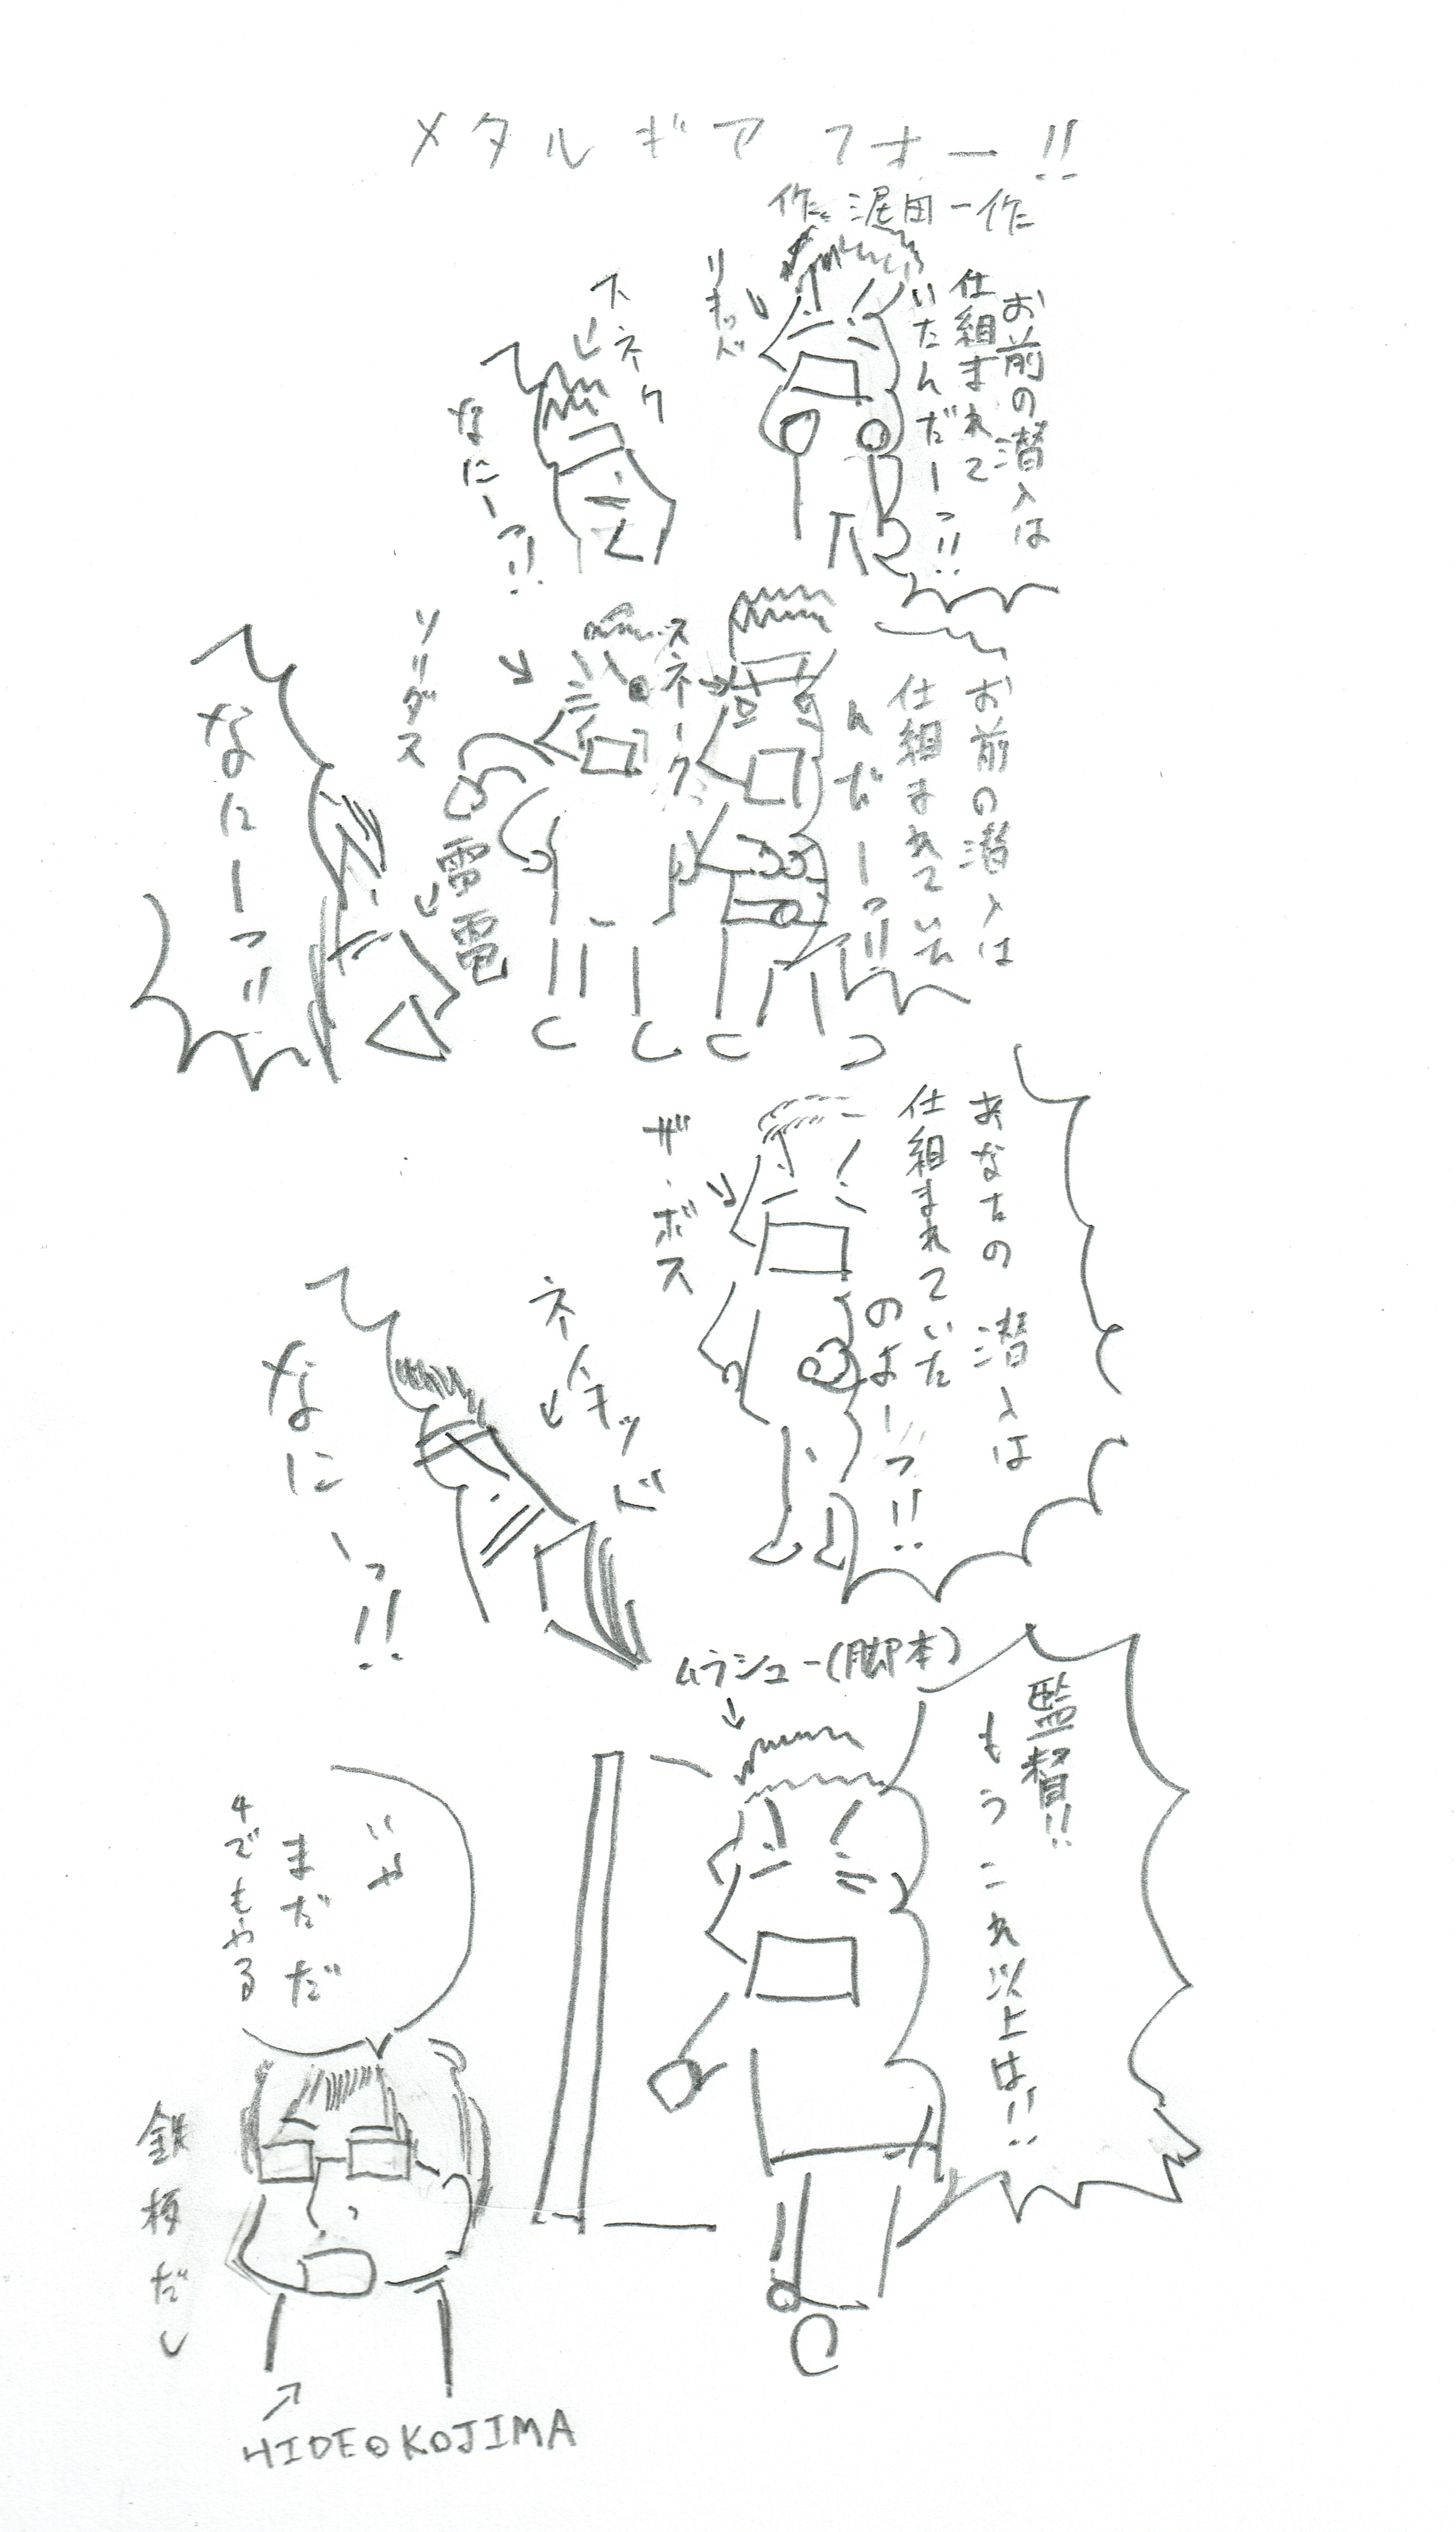 メタルギアフォー!!
作:泥田一作
お前の潜入は
仕組まれて
いたんだーっ!!
リキッド
スネク
なにーっ!!
お前の潜入は
仕組まれていた
んだーっ!!
スネーク
ソリダス
雷電
なにーっ!!
あなたの潜入は
仕組まれていた
のよーっ!!
ザ・ボス
ネイキッド
なにーっ!!
監督!!
もうこれ以上は!!
ムラシュー(脚本)
いや
まだだ
4でもやる
鉄板だし
HIDEO KOJIMA